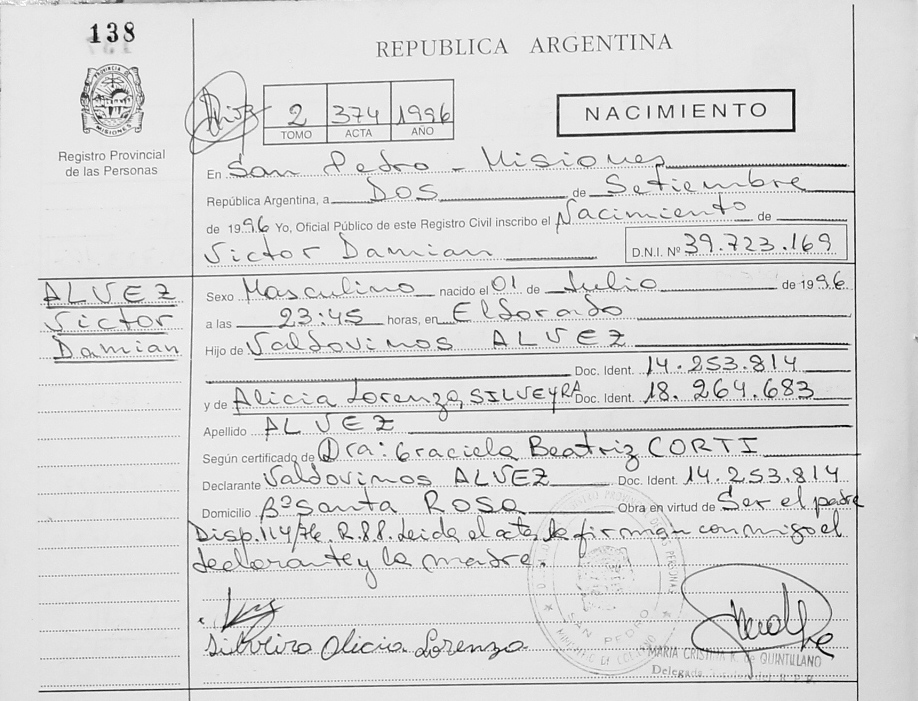 138
REPUBLICA ARGENTINA
PROVINCIA DE MISIONES
Registro Provincial
de las Personas
2 374 1996
TOMO ACTA AÑO
NACIMIENTO
En San Pedro - Misiones
República Argentina, a Dos de Setiembre
de 1996 Yo, Oficial Público de este Registro Civil inscribo el Nacimiento de
Victor Damian D.N.I. Nº 39.723.169
ALVEZ
Victor
Damian
Sexo Masculino nacido el 01 de Julio de 1996
a las 23:45 horas, en Eldorado
Hijo de Valdovinos ALVEZ
Doc. Ident. 14.253.814
y de Alicia Lorenza, SILVEYRA Doc. Ident. 18.264.683
Apellido ALVEZ
Según certificado de Dra: Graciela Beatriz CORTI
Declarante Valdovinos ALVEZ Doc. Ident. 14.253.814
Domicilio Bº Santa Rosa Obra en virtud de Ser el padre
Disp. 114/76. R.88. Leida el acta, la firman conmigo el
declarante y la madre.
SAN PEDRO
Silveira Alicia Lorenza
MARIA CRISTINA K. de QUINTILLANO
Delegada